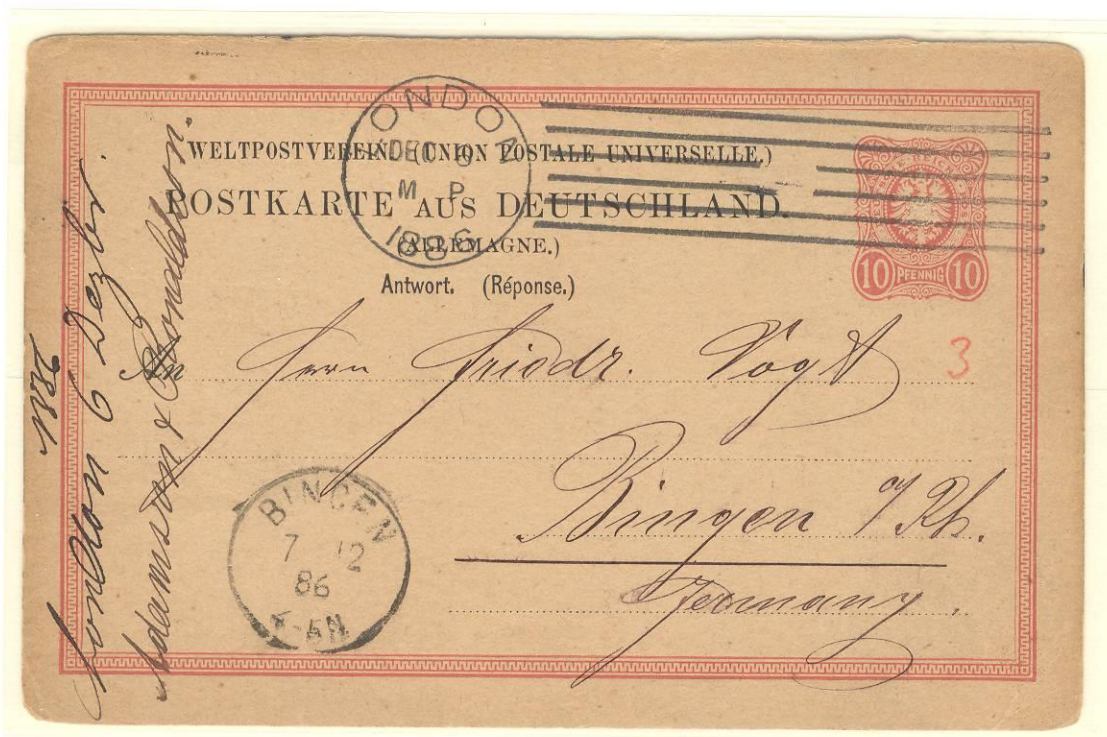 WELTPOSTVEREIN. (UNION POSTALE UNIVERSELLE.)
POSTKARTE AUS DEUTSCHLAND.
(ALLEMAGNE.)
Antwort. (Réponse.)
LONDON
DEC 6 86
M P
1886
REICHS
10 PFENNIG 10
3
An Herrn Friedr. Vogt
Bingen a/Rh.
Germany.
BINGEN
7 12
86
London 6 Dezbr.
1886
Adamson & Ronaldson.